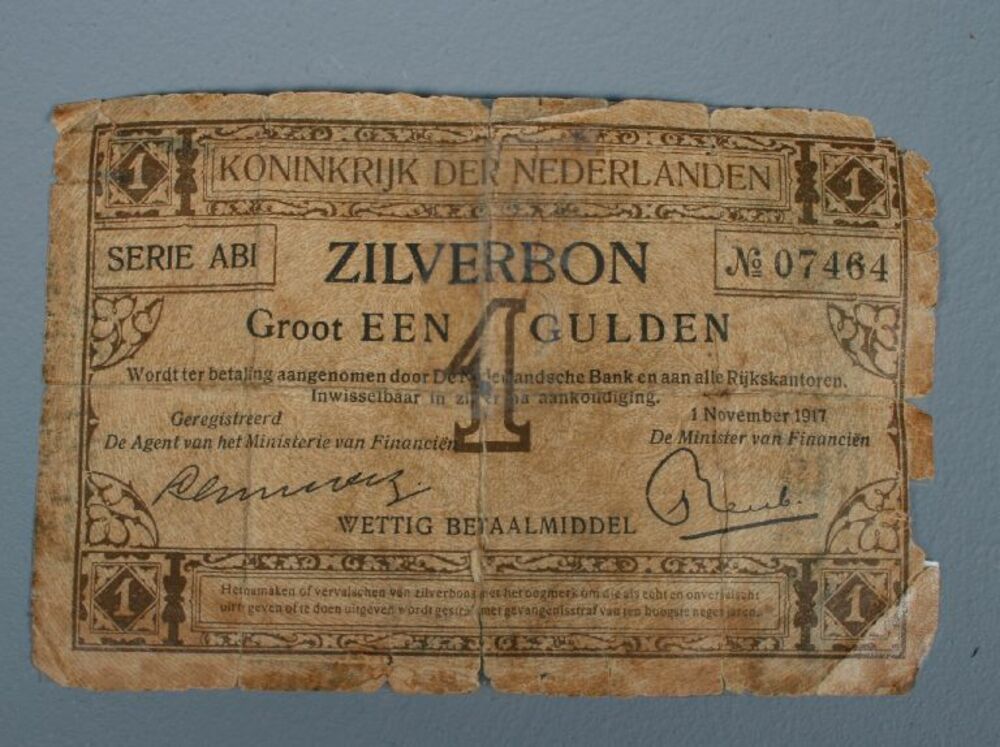 1 KONINKRIJK DER NEDERLANDEN 1
SERIE ABI ZILVERBON № 07464
Groot EEN 1 GULDEN
Wordt ter betaling aangenomen door De Nederlandsche Bank en aan alle Rijkskantoren.
Inwisselbaar in zilver na aankondiging.
Geregistreerd 1 November 1917
De Agent van het Ministerie van Financiën De Minister van Financiën
WETTIG BETAALMIDDEL
1 Het namaken of vervalschen van zilverbons met het oogmerk om die als echt en onvervalscht 1
uit te geven of te doen uitgeven wordt gestraft met gevangenisstraf van ten hoogste negen jaren.